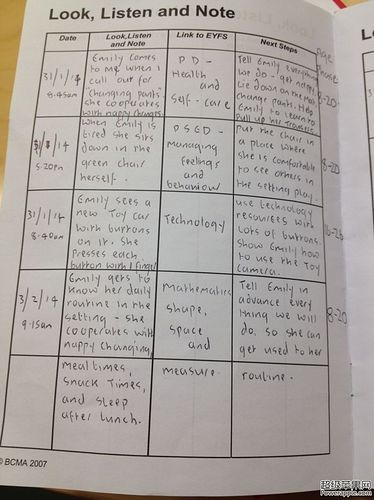 Look, Listen and Note
Date
Look, Listen
and Note
Link to EYFS
Next Steps
Age
Phase
31/1/14
8.45am
Emily comes
to me when I
call out for
"changing pants".
she cooperates
with nappy changes
PD -
Health
and
Self-care
Tell Emily everything
we do - get nappy
lie down on the mat
change pants. Help
Emily to learn to
Pull up her trousers
8-20
14
5.20pm
When Emily is
tired she sits
down in the
green chair
herself.
PSED -
managing
feelings
and
behaviour
Put the chair in
a place where
she is comfortable
to see others in
the setting play.
8-20
31/1/14
8.40am
Emily sees a
new Toy car
with buttons
on it. She
presses each
button with 1 finger
Technology
use technology
resources with
lots of buttons.
Show Emily how
to use the Toy
camera.
16-26
3/2/14
9.15am
Emily gets to
know her daily
routine in the
setting - she
cooperates with
nappy changing,
mathematics
shape,
space
and
Tell Emily in
advance every
thing we will
do. so she can
get used to her
8-20
meal times,
snack times,
and sleep
after lunch.
measure.
routine.
© BCMA 2007
超级苹果网
Powerapple.com